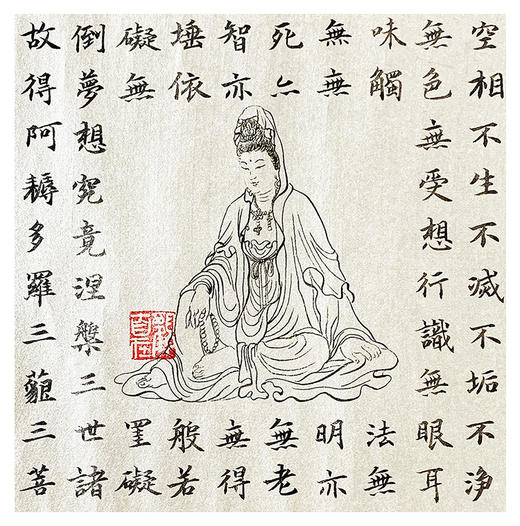 空相不生不滅不垢不淨
無色無受想行識無眼耳
味觸法無
無無明亦
死亦無老
智亦無得
埵依般若
礙無罣礙
倒夢想究竟涅槃三世諸
故得阿耨多羅三藐三菩